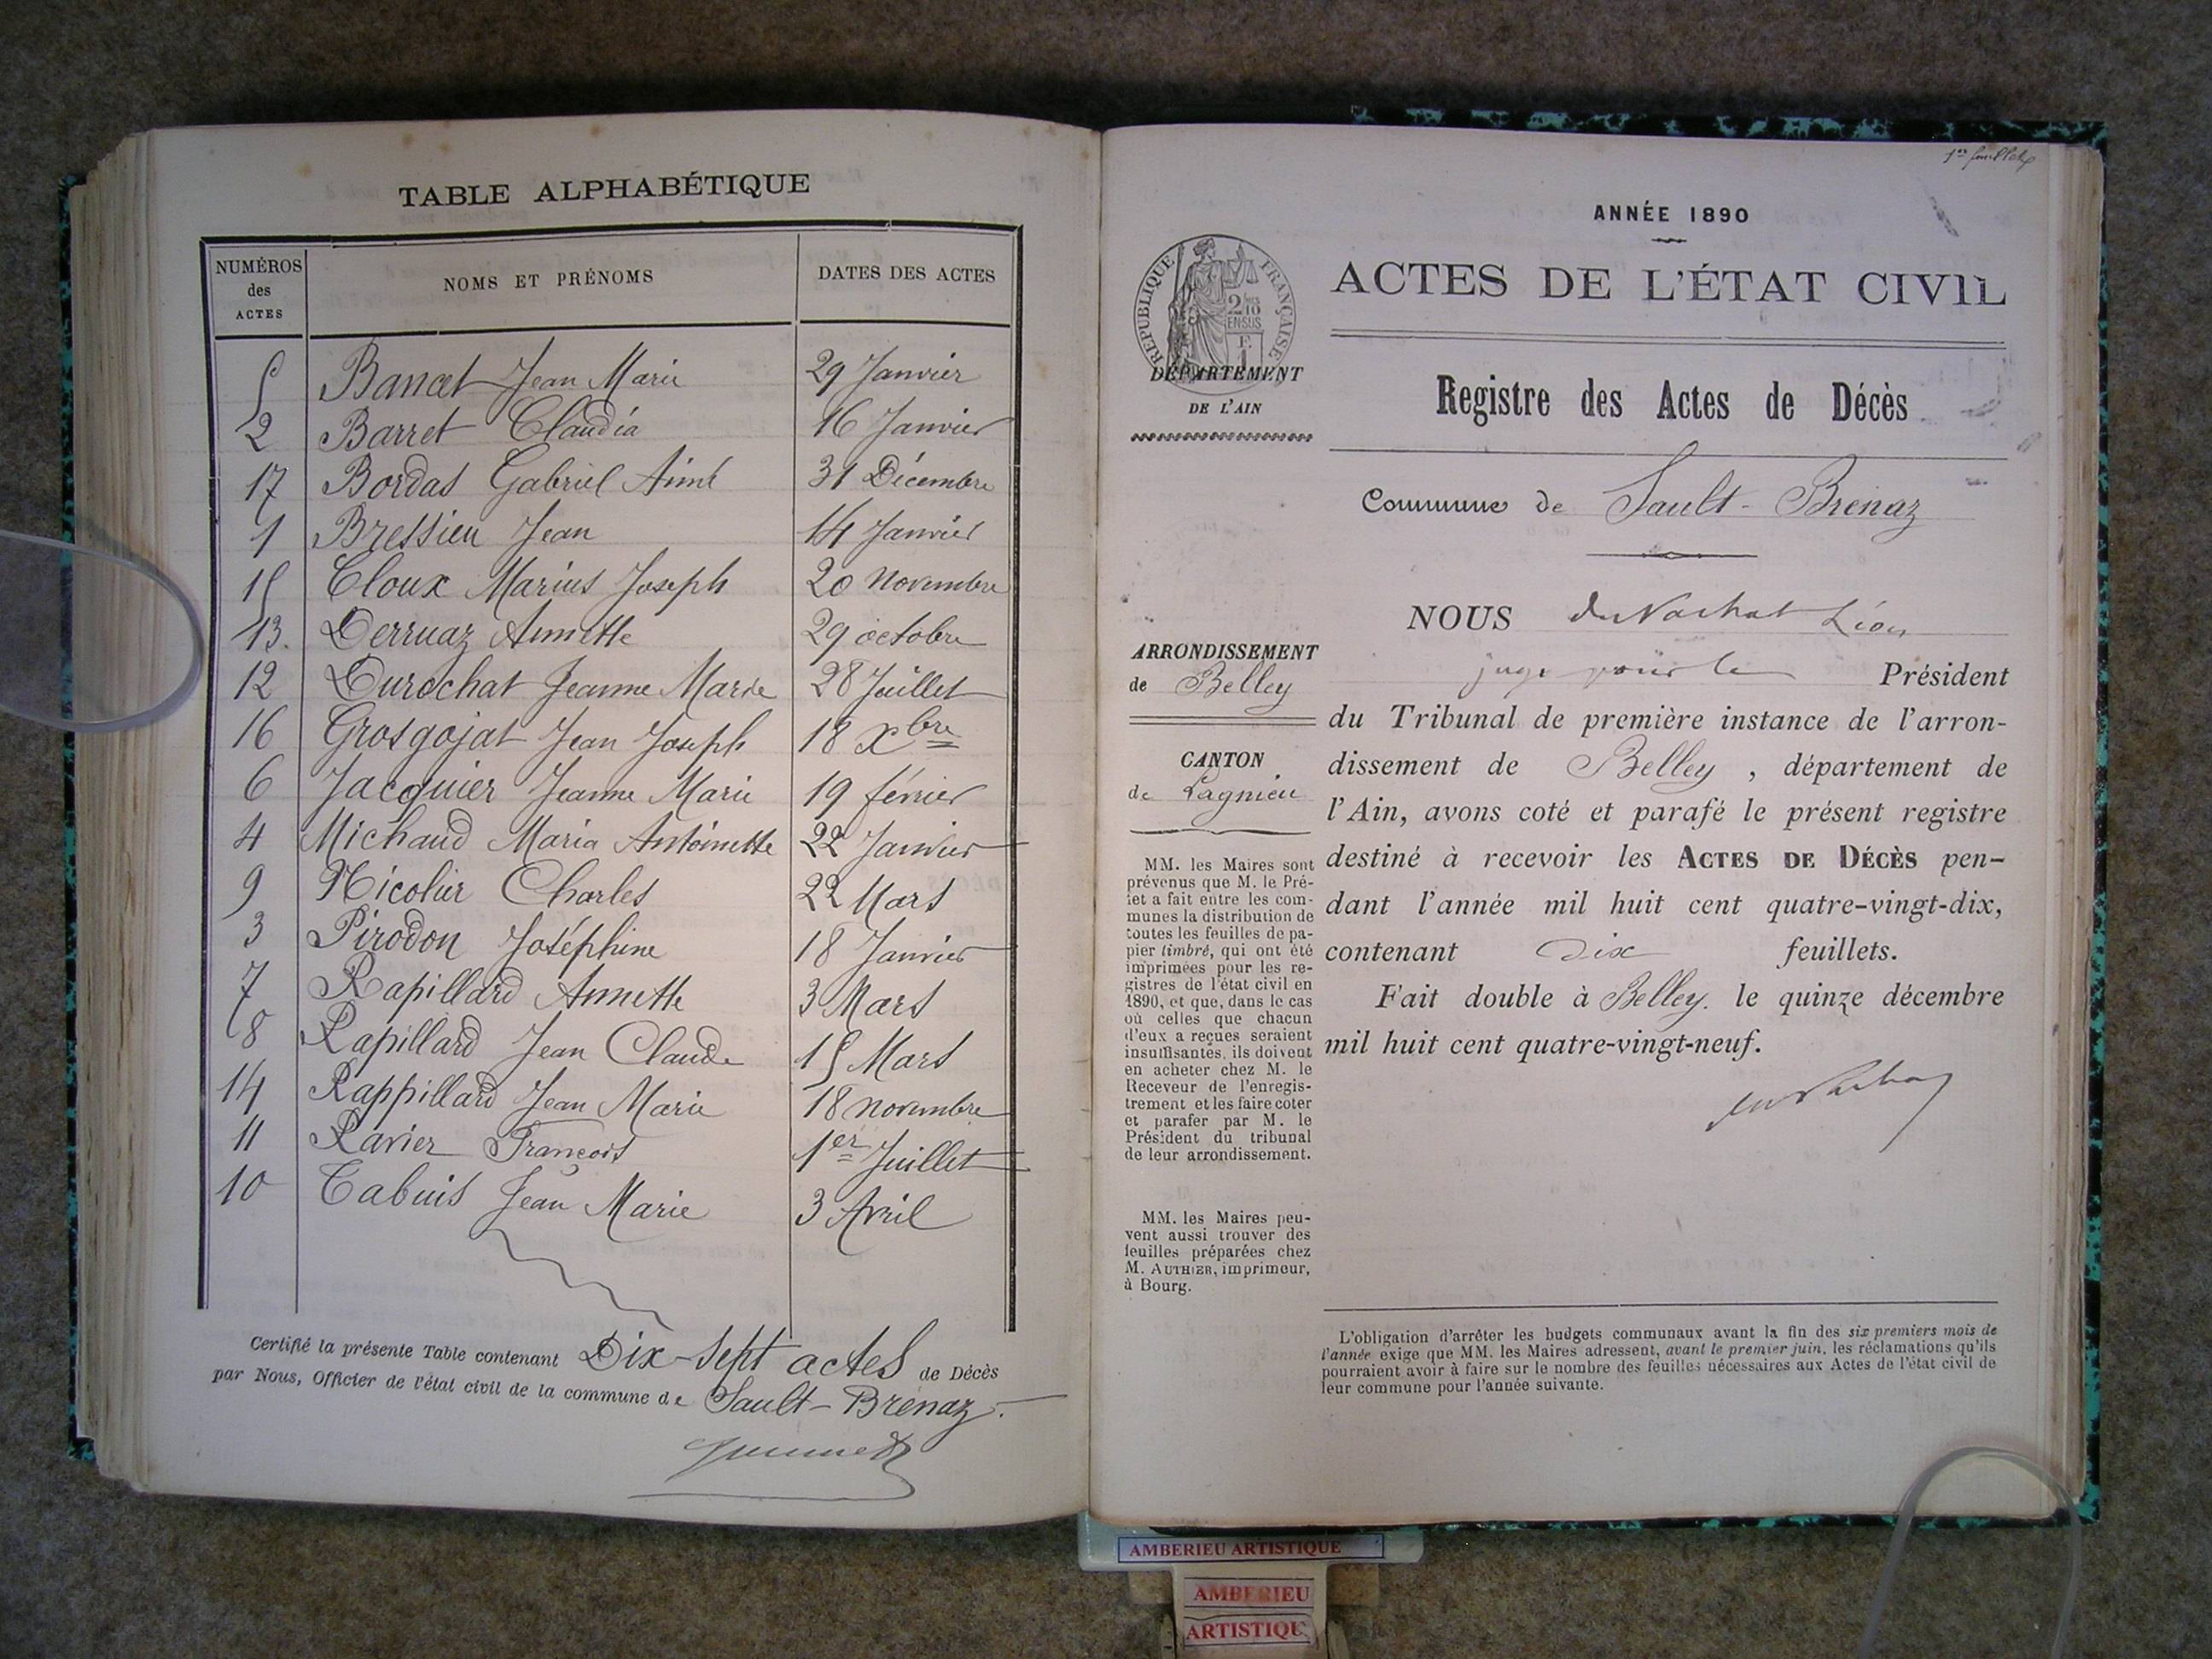 TABLE ALPHABÉTIQUE
NUMÉROS des ACTES
NOMS ET PRÉNOMS
DATES DES ACTES
5 Bancet Jean Marie 29 Janvier
2 Barret Claudia 16 Janvier
17 Bordas Gabriel Aimé 31 Décembre
1 Bressieu Jean 14 Janvier
15 Cloux Marius Joseph 20 Novembre
13. Derruaz Annette 29 octobre
12 Durochat Jeanne Marie 28 Juillet
16 Grosgojat Jean Joseph 18 Xbre
6 Jacquier Jeanne Marie 19 février
4 Michaud Maria Antoinette 22 Janvier
9 Nicolier Charles 22 Mars
3 Pirodon Joséphine 18 Janvier
7 Rapillard Annette 3 Mars
8 Rapillard Jean Claude 15 Mars
14 Rappillard Jean Marie 18 novembre
11 Ravier François 1er Juillet
10 Tabuis Jean Marie 3 Avril
Certifié la présente Table contenant Dix-sept actes de Décès
par Nous, Officier de l'état civil de la commune de Sault-Brenaz.
1er feuillet
ANNÉE 1890
ACTES DE L'ÉTAT CIVIL
RÉPUBLIQUE FRANÇAISE
2/10 EN SUS
DÉPARTEMENT
DE L'AIN
Registre des Actes de Décès
Commune de Sault-Brenaz
ARRONDISSEMENT
de Belley
CANTON
de Lagnieu
MM. les Maires sont
prévenus que M. le Pré-
fet a fait entre les com-
munes la distribution de
toutes les feuilles de pa-
pier timbré, qui ont été
imprimées pour les re-
gistres de l'état civil en
1890, et que, dans le cas
où celles que chacun
d'eux a reçues seraient
insuffisantes, ils doivent
en acheter chez M. le
Receveur de l'enregis-
trement et les faire coter
et parafer par M. le
Président du tribunal
de leur arrondissement.
MM. les Maires peu-
vent aussi trouver des
feuilles préparées chez
M. AUTHIER, imprimeur,
à Bourg.
NOUS du Nachat Léon
juge pour le Président
du Tribunal de première instance de l'arron-
dissement de Belley, département de
l'Ain, avons coté et parafé le présent registre
destiné à recevoir les ACTES DE DÉCÈS pen-
dant l'année mil huit cent quatre-vingt-dix,
contenant dix feuillets.
Fait double à Belley. le quinze décembre
mil huit cent quatre-vingt-neuf.
L'obligation d'arrêter les budgets communaux avant la fin des six premiers mois de
l'année exige que MM. les Maires adressent, avant le premier juin, les réclamations qu'ils
pourraient avoir à faire sur le nombre des feuilles nécessaires aux Actes de l'état civil de
leur commune pour l'année suivante.
AMBERIEU ARTISTIQUE
AMBERIEU
ARTISTIQU